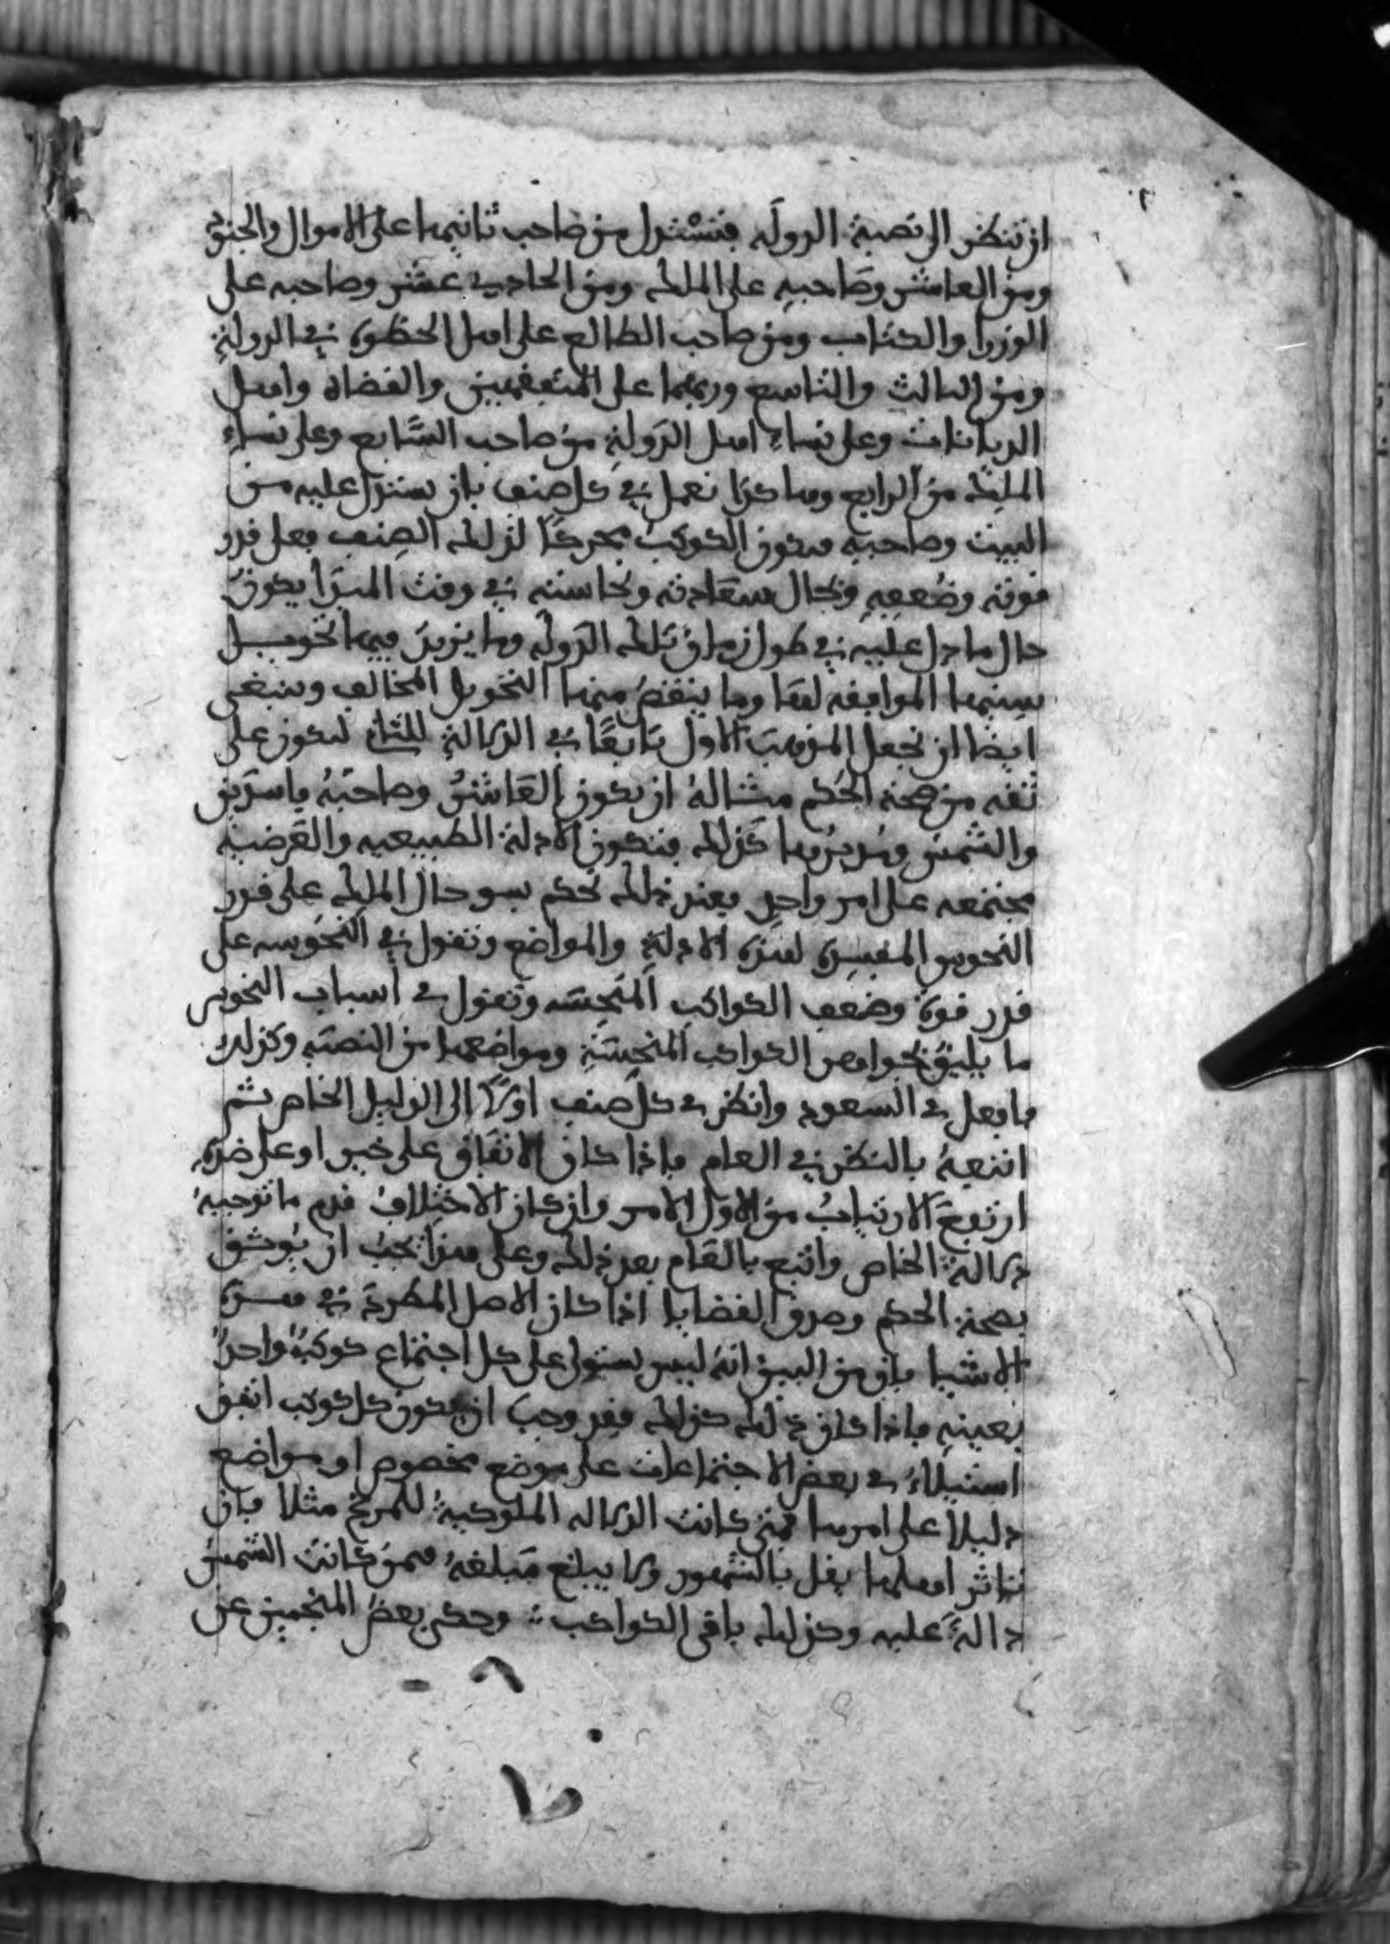 ان تنظر الى نصبة الدولة فتستدل من صاحب ثانيها على الاموال والجنود
ومن العاشر وصاحبه على الملك ومن الحادي عشر وصاحبه على
الوزرا والكتاب ومن صاحب الطالع على اهل الحظوة في الدولة
ومن الثالث والتاسع وربهما على المتفقهين والقضاة واهل
الديانات وعلى نساء اهل الدولة من صاحب السابع وعلى نساء
الملك من الرابع وهاكذا نعمل في كل صنف بان يستدل عليه من
البيت وصاحبه فيكون الكوكب محركا لذلك الصنف فعلى قدر
قوته وضعفه وبحال سعادته ونحاسته في وقت المبدا يكون
حال ما دل عليه في طول زمان تلك الدولة وما يزيد فيها تحويل
سنيها الموافقه لها وما ينقص منها التحويل المخالف وينبغي
ايضا ان نجعل المذهب الاول تابعا في الدلالة للثاني لتكون على
ثقه من صحة الحكم مثاله ان يكون العاشر وصاحبه فاسدين
والشمس ومدبرها كذلك فتكون الادلة الطبيعيه والعرضية
مجتمعه على امر واحد فعند ذلك نحكم بسو حال الملك على قدر
النحوس المفسدة لهذه الادلة والمواضع وتقول في النحوسه على
قدر قوة وضعف الكواكب المنحسه وتقول في اسباب النحوس
ما يليق بجواهر الكواكب المنحسة ومواضعها من النصبة وكذلك
فافعل في السعود وانظر في كل صنف اولا الى الدليل الخاص ثم
اتبعه بالنظر في العام فاذا كان الاتفاق على خير او على ضده
ارتفع الارتياب من الاول الامر وان كان الاختلاف قدم ما توجبه
دلالة الخاص واتبع بالعام بعد ذلك وعلى هذا يجب ان يوثق
بصحة الحكم وصدق القضايا اذا كان الاصل المطرد في هذه
الاشيا فان من البين انه ليس يستولي على كل اجتماع كوكب واحد
بعينه فاذا كان ذلك كذلك فقد وجب ان يكون كل كوكب اتفق
استيلاء في بعض الاجتماعات على موضع مخصوص او مواضع
دليلا على امر ما فمتى كانت الدلاله الملوكية للمريخ مثلا فان
تاثر اهلها يقل بالشهور ولا يبلغ مبلغه فمن كانت الشمس
دالة عليه وكذلك باقي الكواكب وحكى بعض المنجمين عن